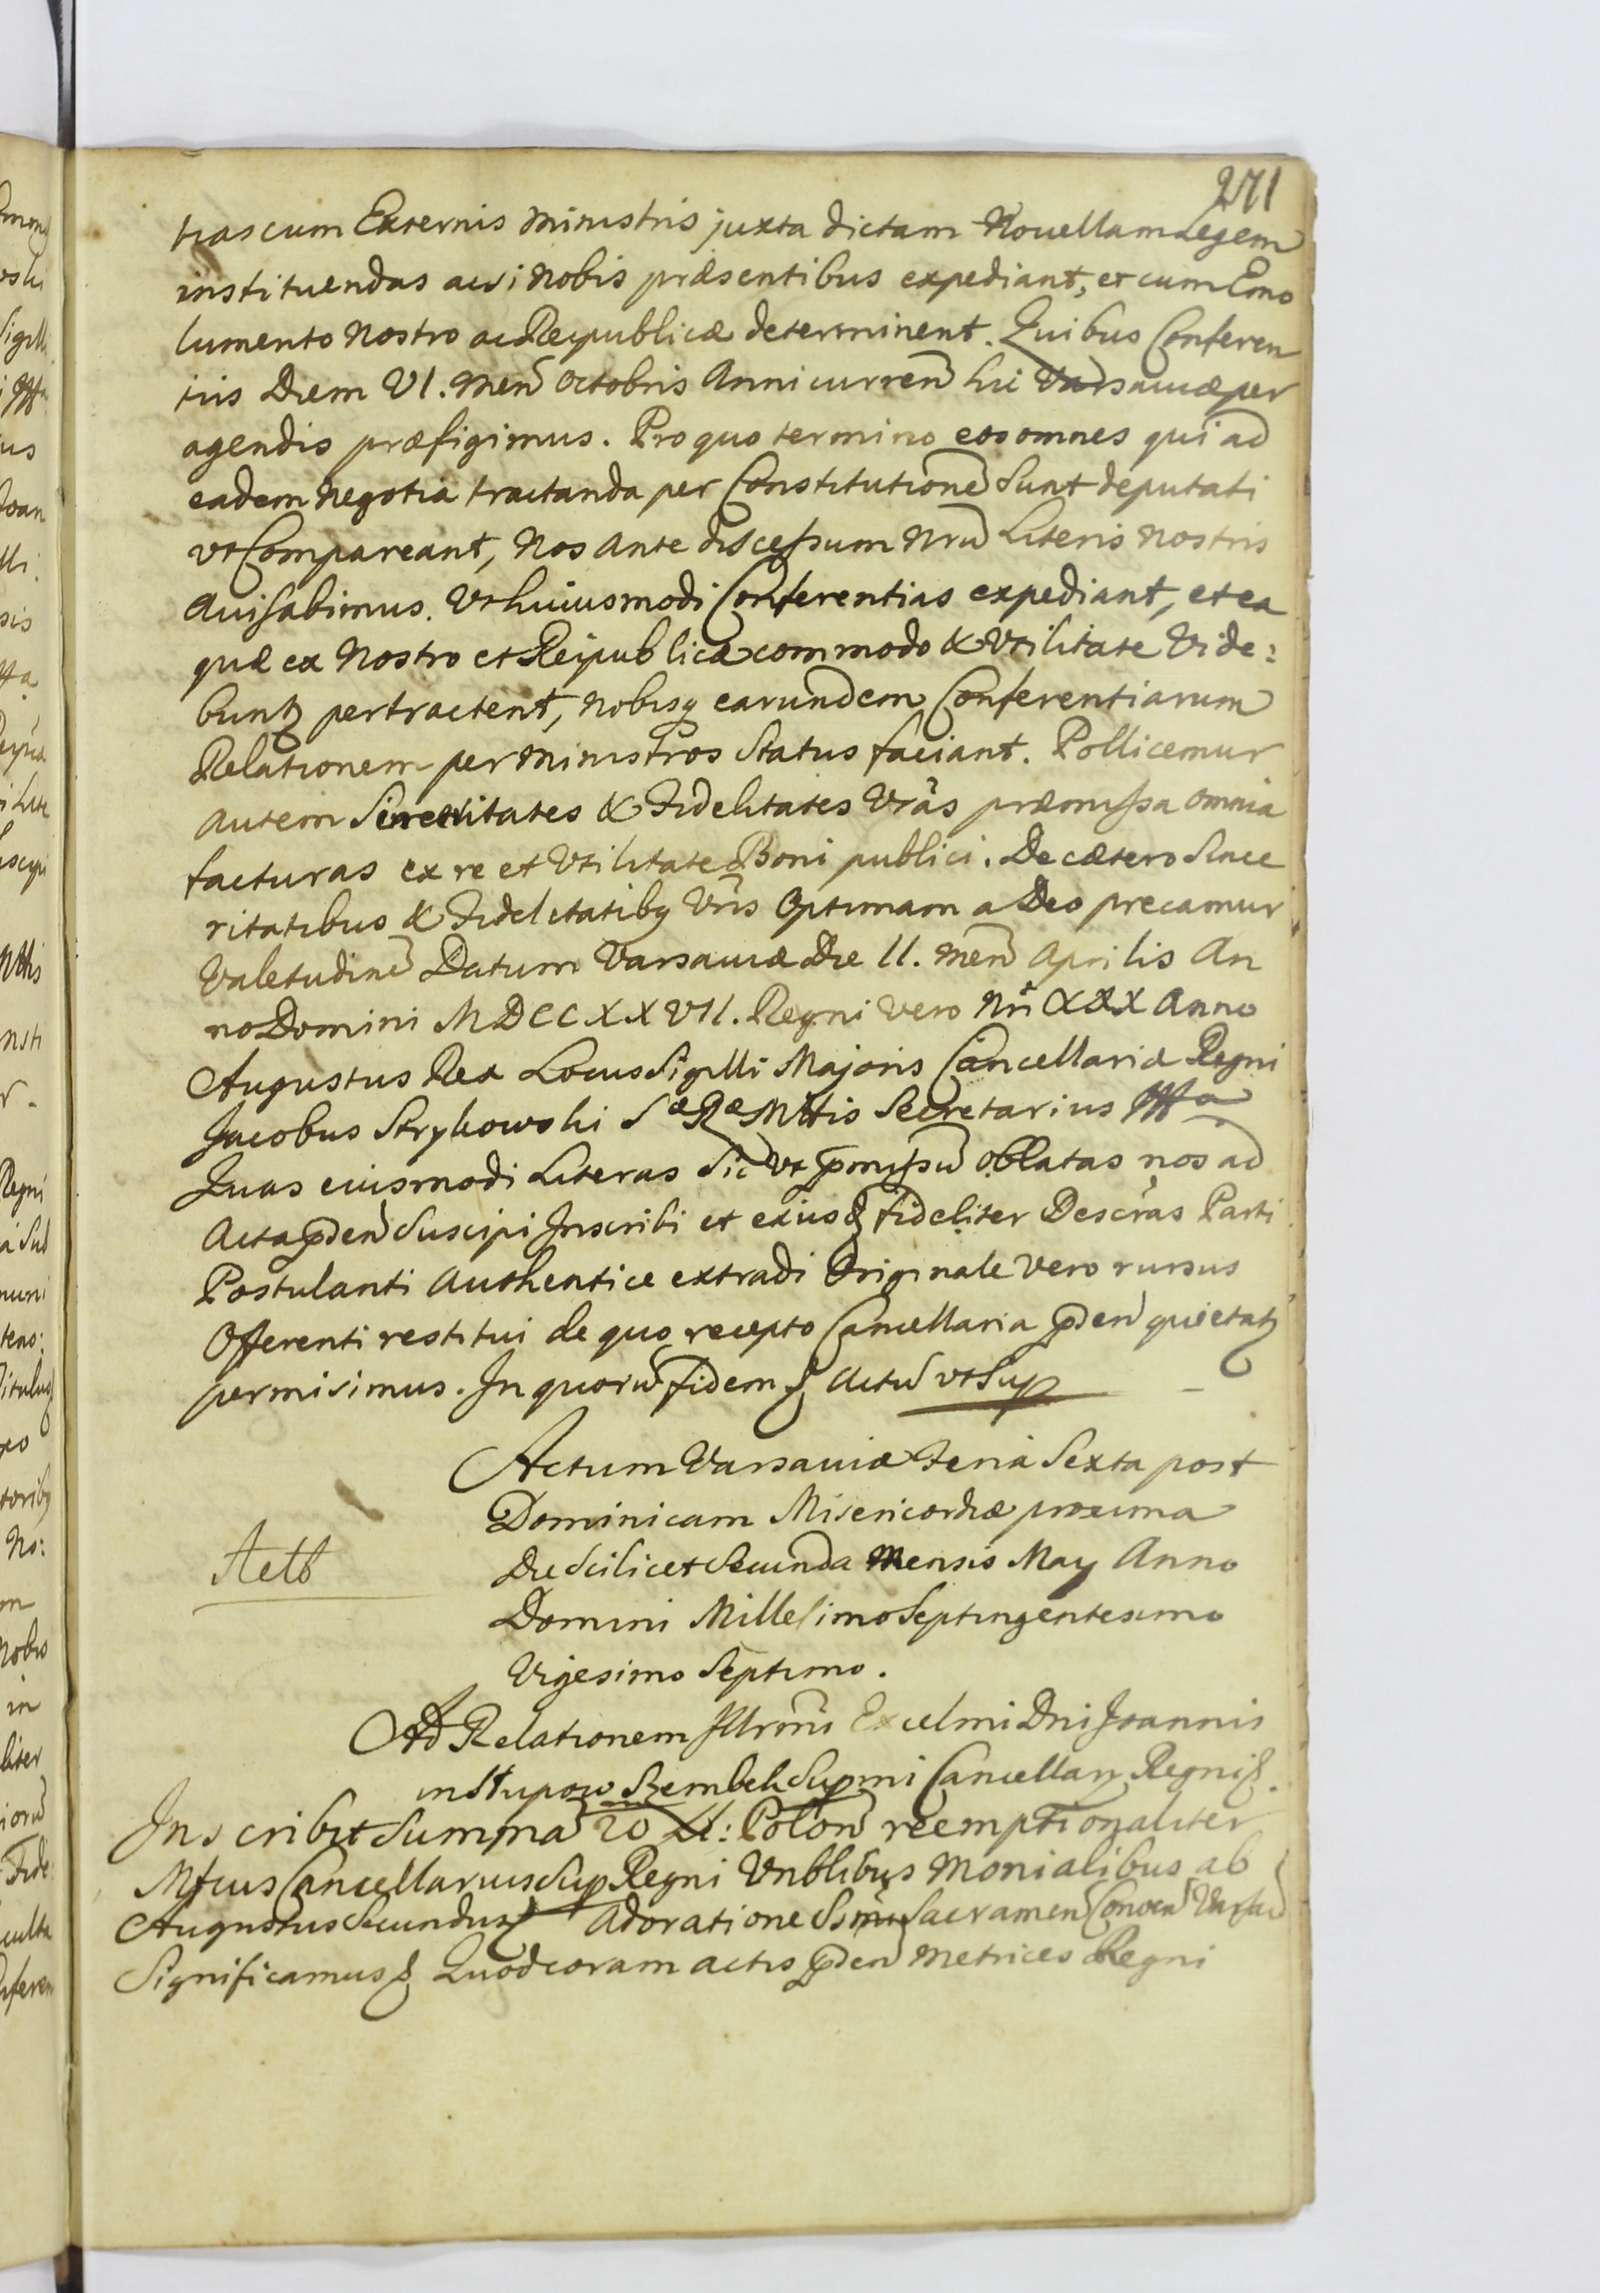 271
tias cum Externis Ministris juxta dictam Nouellam Legem
instituendas acsi Nobis præsentibus expediant, et cum Emo
lumento Nostro ac Reipublicæ determinent. Quibus Conferen
tiis Diem VI. Men Octobris Anni curren hic Varsauiæ per
agendis præfigimus. Pro quo termino eos omnes qui ad
eadem Negotia tractanda per Constitutione Sunt deputati
vt Compareant, Nos Ante discessum Nrm Literis Nostris
Auisabimus. Vt huiusmodi Conferentias expediant, et ea
quæ ex Nostro et Reipublicæ commodo & Vtilitate Vide:
buntz pertractent, Nobisq earundem Conferentiarum
Relationem per Ministros Status faciant. Pollicemur
Autem Sinceritates & Fidelitates Vras præmissa omnia
facturas ex re et Vtilitate Boni publici. De cætero Since
ritatibus & Fidelitatibq Vris Optimam a Deo precamur
Valetudine Datum Varsauiæ Die II. Men Aprilis An
no Domini MDCCXXVII. Regni Vero Nri XXX Anno
Augustus Rex Locus Sigilli Majoris Cancellariæ Regni
Jacobus Strykowski Sæ Ræ Mttis Secretarius
Quas eiusmodi Literas Sic Vt pmissu oblatas nos ad
Acta pden Suscipi Inscribi et eius fideliter Descras Parti
Postulanti Authentice extradi Originale Vero rursus
Offerenti restitui de quo recepto Cancellaria pden quietatz
permisimus. In quoru fidem & Actu vt Sup
Actum Varsauiæ Feria Sexta post
Dominicam Misericordiæ proxima
Die Scilicet Secunda Mensis May Anno
Domini Millesimo Septingentesimo
Vigesimo Septimo.
Ad Relationem Illrmi Excelmi Dni Joannis
in Stupow Szembek Supmi Cancellary Regni &.
Inscribit Summa 20 : Polon reemptionaliter
Mfcus Cancellarius Sup Regni Vnblibus Monialibus ab
Augustus Secundus & Adoratione Ssmi Sacramen Conven Varsav
Significamus & Quod coram actis pden Metrices Regni